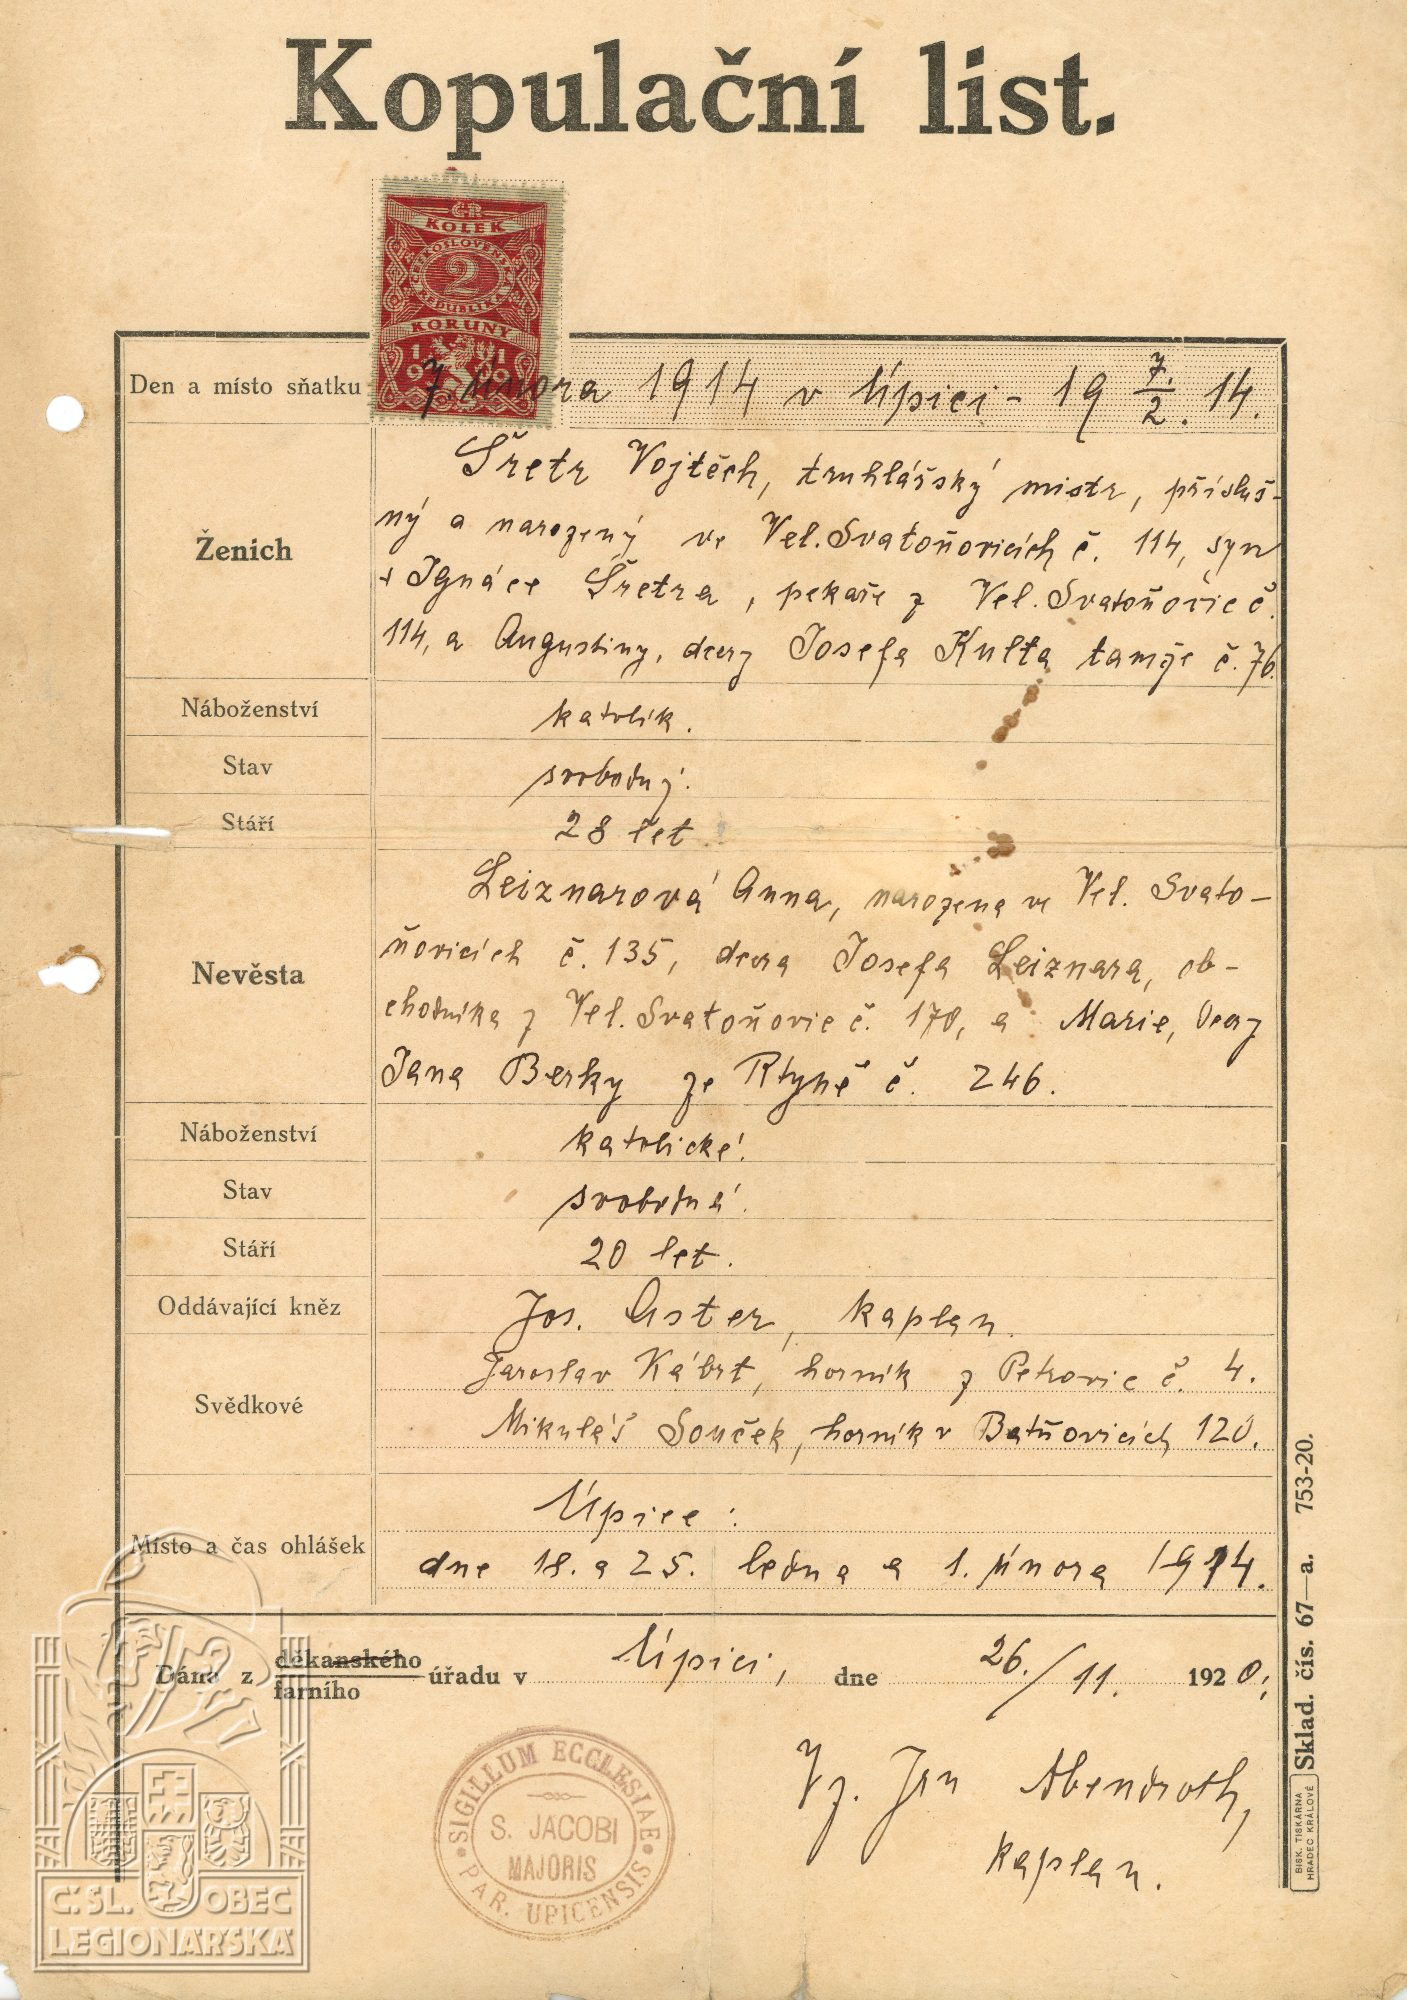 Kopulační list.
ČR
KOLEK
ČESKOSLOVENSKÁ
2
REPUBLIKA
KORUNY
1919
Den a místo sňatku 7. února 1914 v Úpici - 19 7./2. 14.
Šretr Vojtěch, truhlářský mistr, přísluš-
Ženich
ný a narozený ve Vel. Svatoňovicích č. 114, syn
+ Ignáce Šretra, pekaře z Vel. Svatoňovic č.
114, a Augustiny, dcery Josefa Kulta tamže č. 76.
Náboženství katolík.
Stav svobodný.
Stáří 28 let.
Leiznarová Anna, narozena ve Vel. Svato-
Nevěsta
ňovicích č. 135, dcera Josefa Leiznara, ob-
chodníka z Vel. Svatoňovic č. 170, a Marie, dcery
Jana Berky ze Rtyně č. 246.
Náboženství katolické.
Stav svobodná.
Stáří 20 let.
Oddávající kněz Jos. Aster, kaplan.
Svědkové
Jaroslav Kábrt, horník z Petrovic č. 4.
Mikuláš Souček, horník v Batňovicích 120.
Místo a čas ohlášek
Úpice:
dne 18. a 25. ledna a 1. února 1914.
Dáno z děkanského farního úřadu v Úpici, dne 26./11. 1920;
Jan Abendroth,
kaplan.
SIGILLUM ECCLESIAE
S. JACOBI
MAJORIS
PAR. UPICENSIS
Č.SL. OBEC
LEGIONÁŘSKÁ
BISK. TISKÁRNA
HRADEC KRÁLOVÉ
Sklad. čís. 67—a. 753-20.